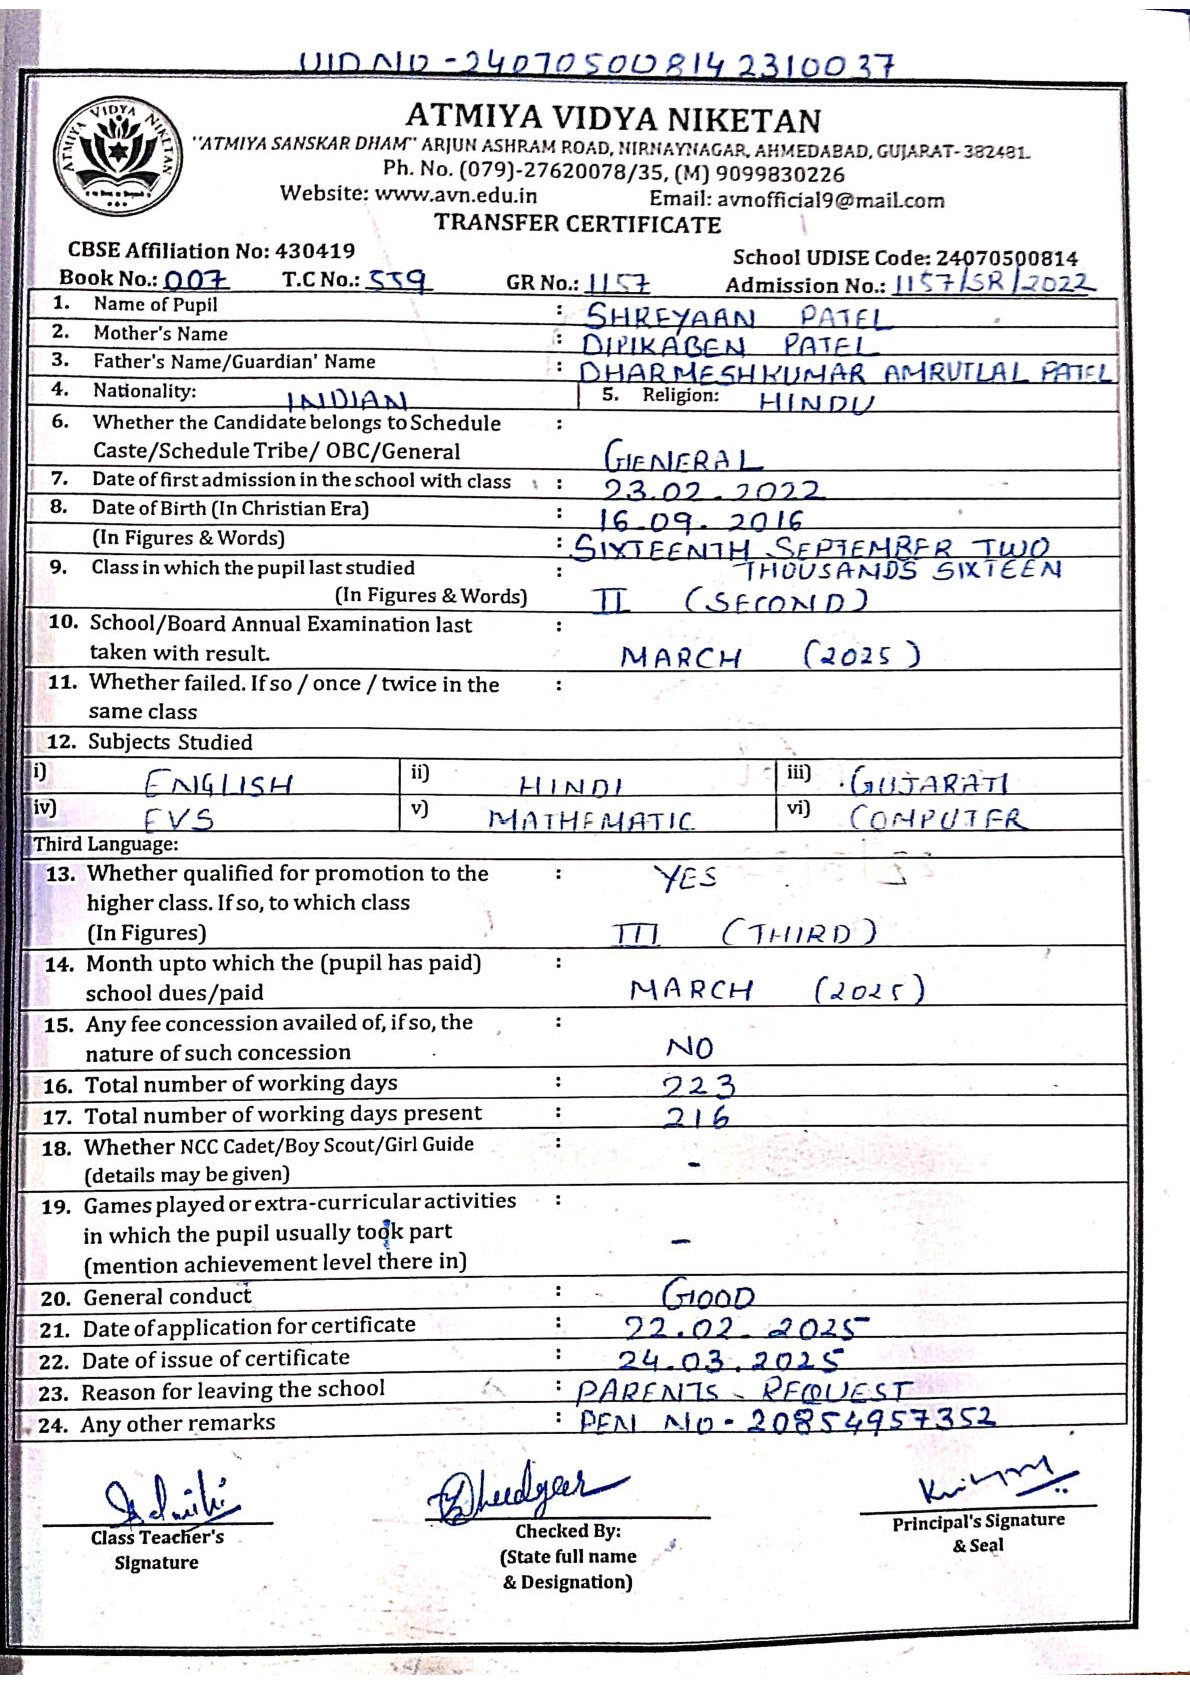 UID NO - 240705008142310037
ATMIYA VIDYA NIKETAN
ATMIYA VIDYA NIKETAN
"ATMIYA SANSKAR DHAM" ARJUN ASHRAM ROAD, NIRNAYNAGAR, AHMEDABAD, GUJARAT-382481.
Ph. No. (079)-27620078/35, (M) 9099830226
Website: www.avn.edu.in Email: avnofficial9@mail.com
TRANSFER CERTIFICATE
CBSE Affiliation No: 430419 School UDISE Code: 24070500814
Book No.: 007 T.C No.: 559 GR No.: 1157 Admission No.: 1157/SR/2022
1. Name of Pupil : SHREYAAN PATEL
2. Mother's Name : DIPIKABEN PATEL
3. Father's Name/Guardian' Name : DHARMESHKUMAR AMRUTLAL PATEL
4. Nationality: INDIAN 5. Religion: HINDU
6. Whether the Candidate belongs to Schedule :
Caste/Schedule Tribe/ OBC/General GENERAL
7. Date of first admission in the school with class : 23.02.2022
8. Date of Birth (In Christian Era) : 16.09.2016
(In Figures & Words) : SIXTEENTH SEPTEMBER TWO
9. Class in which the pupil last studied : THOUSANDS SIXTEEN
(In Figures & Words) II (SECOND)
10. School/Board Annual Examination last :
taken with result. MARCH (2025)
11. Whether failed. If so / once / twice in the :
same class
12. Subjects Studied
i) ENGLISH ii) HINDI iii) GUJARATI
iv) EVS v) MATHEMATIC vi) COMPUTER
Third Language:
13. Whether qualified for promotion to the : YES
higher class. If so, to which class
(In Figures) III (THIRD)
14. Month upto which the (pupil has paid) :
school dues/paid MARCH (2025)
15. Any fee concession availed of, if so, the :
nature of such concession NO
16. Total number of working days : 223
17. Total number of working days present : 216
18. Whether NCC Cadet/Boy Scout/Girl Guide :
(details may be given) -
19. Games played or extra-curricular activities :
in which the pupil usually took part -
(mention achievement level there in)
20. General conduct : GOOD
21. Date of application for certificate : 22.02.2025
22. Date of issue of certificate : 24.03.2025
23. Reason for leaving the school : PARENTS REQUEST
24. Any other remarks : PEN NO - 20854957352
Class Teacher's Checked By: Principal's Signature
Signature (State full name & Seal
& Designation)